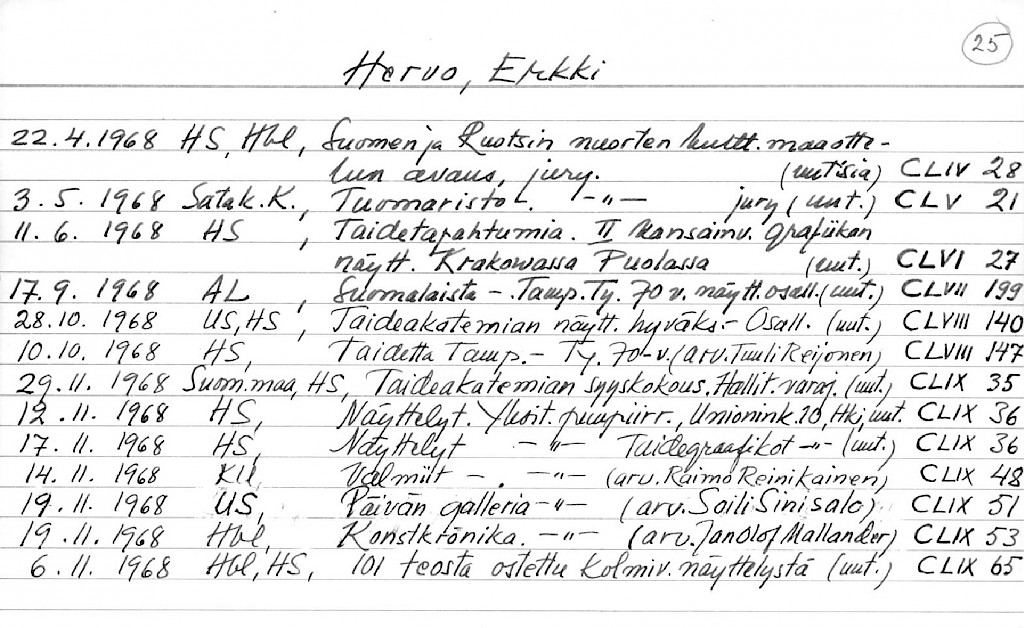 25
Hervo, Erkki
22.4.1968 HS, Hbl, Suomen ja Ruotsin nuorten kultt. maaotte-
lun avaus, jury. (uutisia) CLIV 28
3.5.1968 Satak.K., Tuomaristo -. -"- jury (uut.) CLV 21
11.6.1968 HS, Taidetapahtumia. II kansainv. grafiikan
näytt. Krakowassa Puolassa (uut.) CLVI 27
17.9.1968 AL, Suomalaista -. Tamp.Ty. 70 v. näytt. osall. (uut.) CLVII 199
28.10.1968 US, HS, Taideakatemian näytt. hyväks.- Osall. (uut.) CLVIII 140
10.10.1968 HS, Taidetta Tamp.- Ty. 70-v. (arv. Tuuli Reijonen) CLVIII 147
29.11.1968 Suom.maa, HS, Taideakatemian syyskokous. Hallit. varaj. (uut.) CLIX 35
12.11.1968 HS, Näyttelyt. Yksit. puupiirr., Unionink. 20, Hki, uut. CLIX 36
17.11.1968 HS, Näyttelyt -"- Taidegraafikot -"- (uut.) CLIX 36
14.11.1968 KU, Valmiit -. -"- (arv. Raimo Reinikainen) CLIX 48
19.11.1968 US, Päivän galleria -"- (arv. Soili Sinisalo) CLIX 51
19.11.1968 Hbl, Konstkrönika. -"- (arv. Janolof Mallander) CLIX 53
6.11.1968 Hbl, HS, 101 teosta ostettu kolmiv. näyttelystä (uut.) CLIX 65